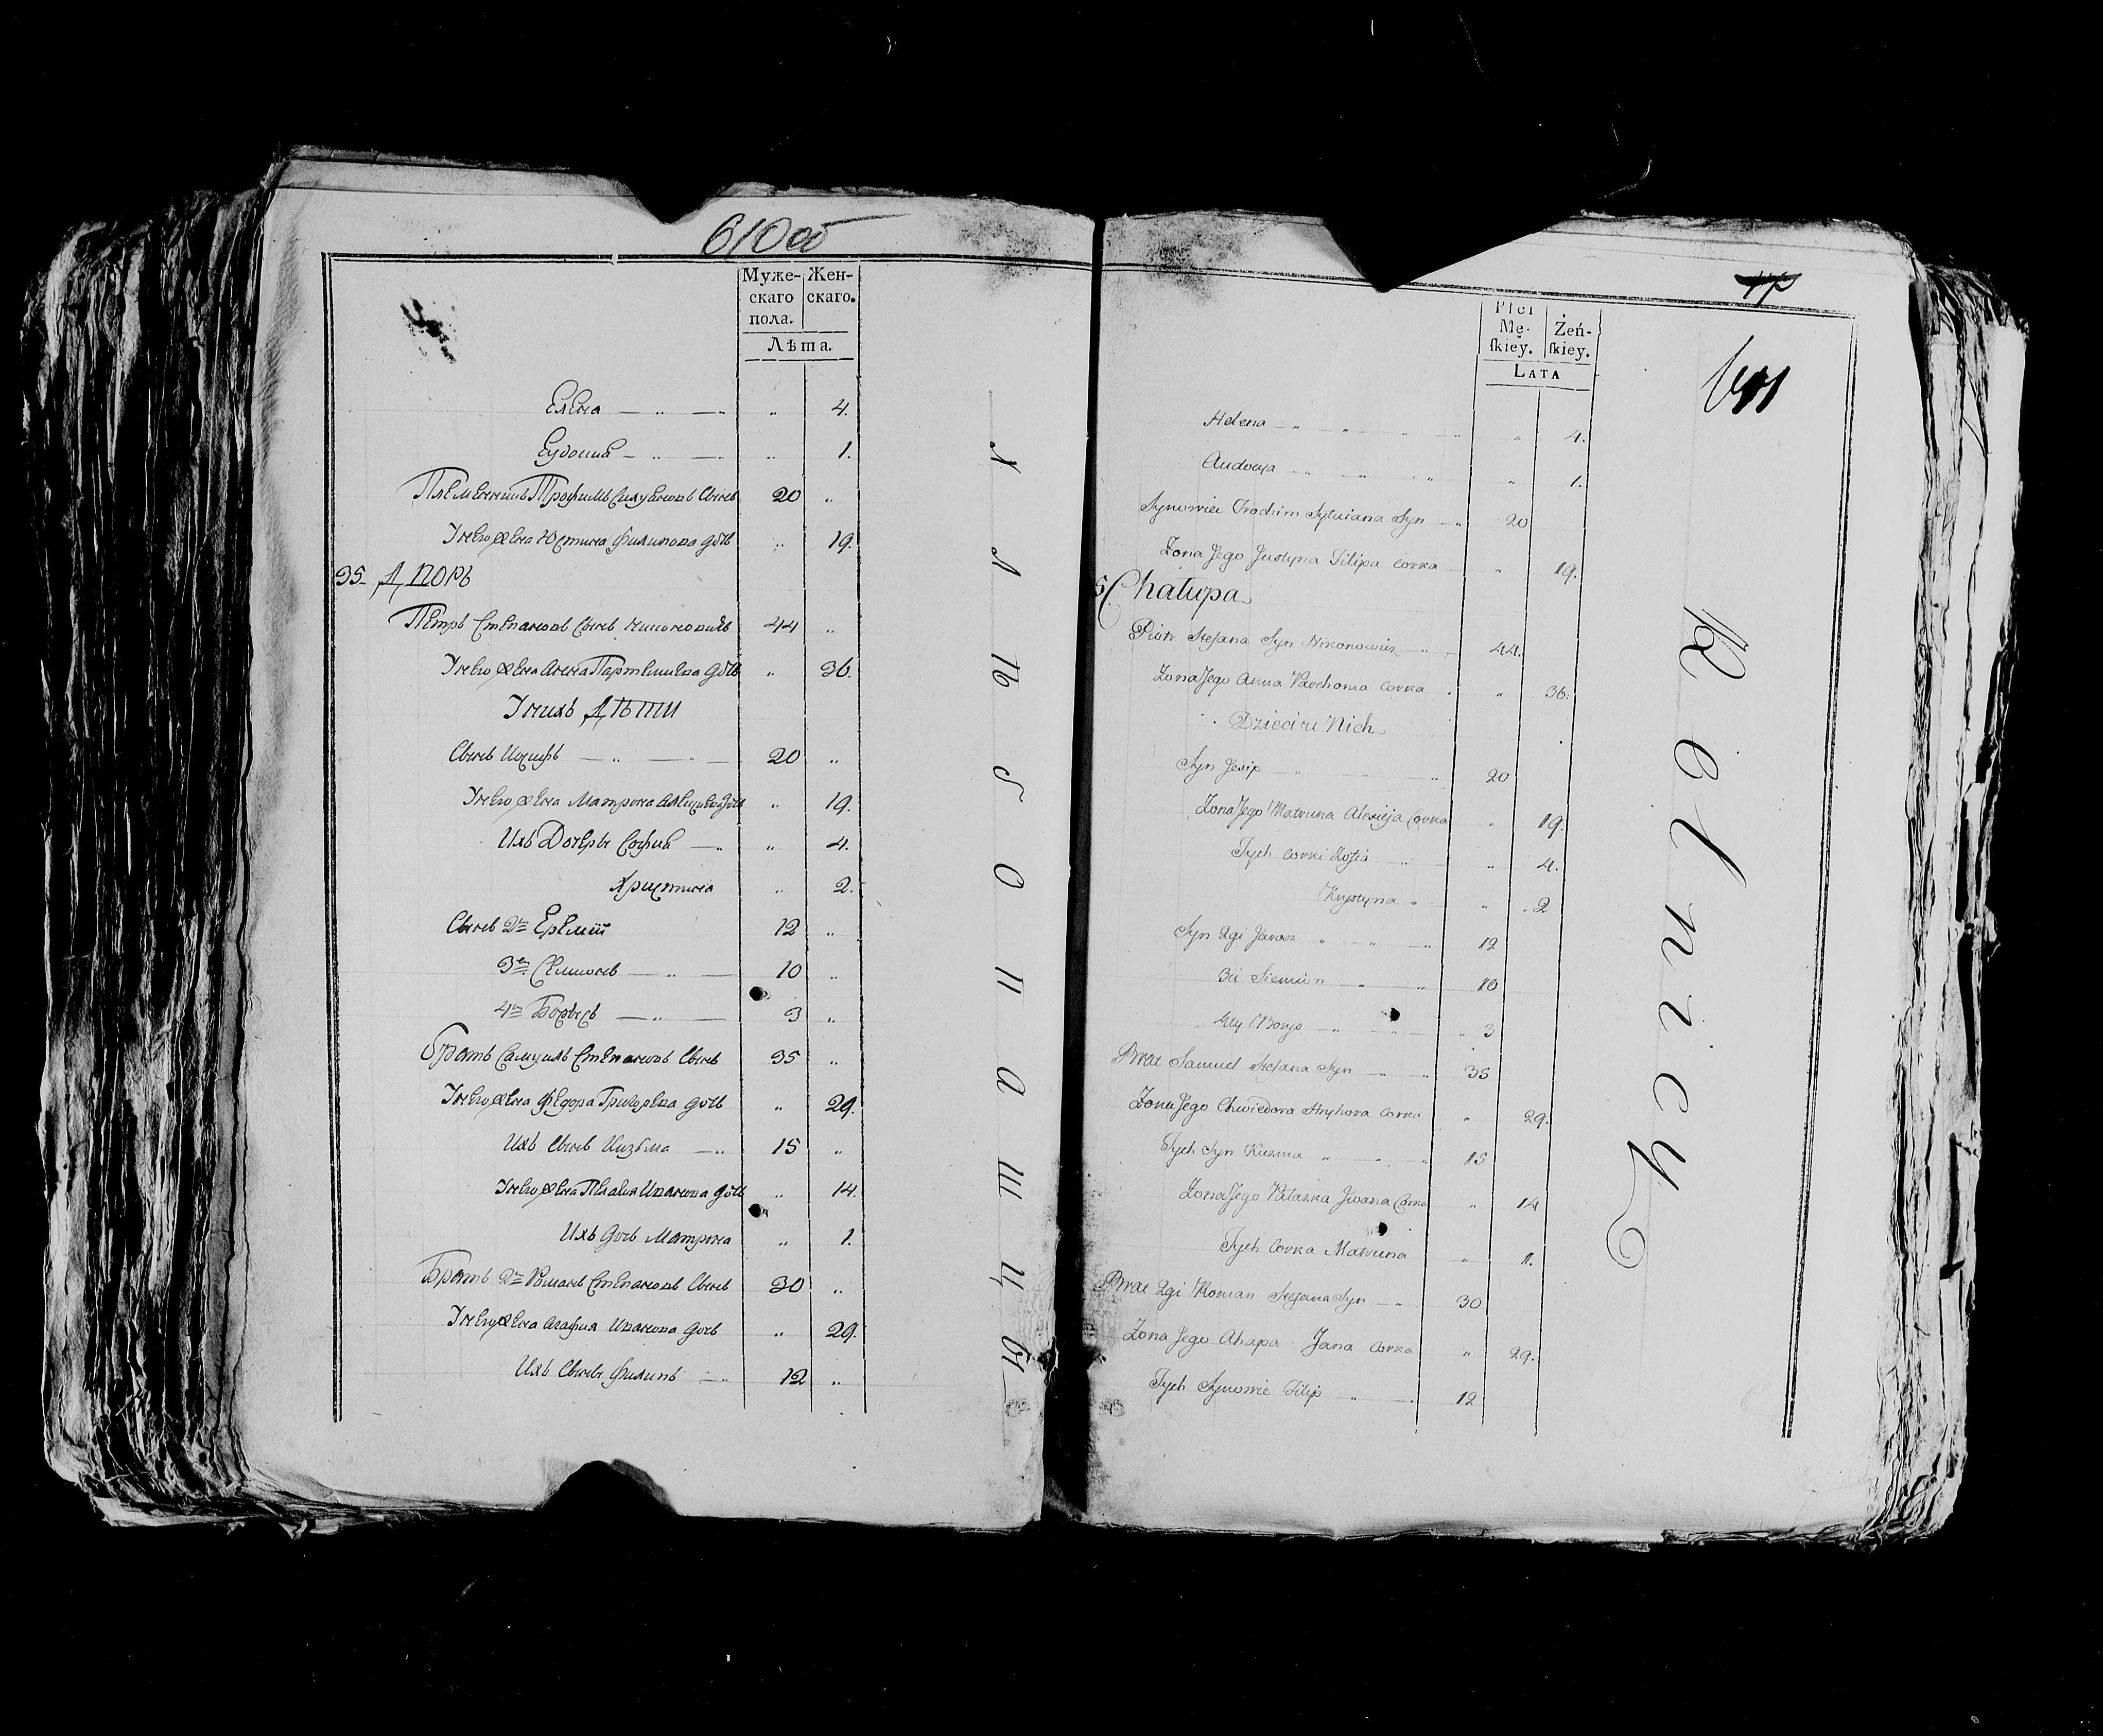 610 об
Муже- Жен-
скаго скаго.
пола.
Лѣта.
Елена — „ — „ 4.
Еудокия — „ — „ 1.
Племенникъ Трофимъ Силуяновъ Сынъ 20 „
У него жена Юстина Филипова дочь „ 19.
35. Дворъ
Петръ Степановъ Сынъ Никоновичъ 44 „
У него жена Анна Пархемиева дочь „ 36.
У нихъ Дѣти
Сынъ Иосифъ — „ — 20 „
У него жена Матрона Алексиева дочь „ 19.
Ихъ Дочеры София — „ 4.
Христина „ 2.
Сынъ 2й Еремий 12 „
3й Симионъ — „ — 10 „
4й Борысъ — „ — 3 „
Братъ Самуилъ Степановъ Сынъ 35 „
У него жена Федора Григорева дочь „ 29.
Ихъ Сынъ Кизьма — „ 15 „
У него жена Пелагия Иванова дочь „ 14.
Ихъ дочь Матрона „ 1.
Братъ 2й Романъ Степановъ Сынъ 30 „
У него жена Агафия Иванова дочь „ 29.
Ихъ Сыны Филипъ — „ 12 „
Хлѣбопашцы
Płci
Mę- Żeń-
ſkiey. ſkiey.
LATA
Helena — „ — „ 4.
Audocya — „ — „ 1.
Synowiec Trochim Sylwiana Syn — „ 20
Zona Jego Justyna Filipa Corka „ 19.
5 Chałupa
Piotr Stefana Syn Nikonowicz — „ 44.
Zona Jego Anna Parchoma Corka „ 36.
Dzieci u Nich
Syn Jesip — „ 20
Zona Jego Matruna Alexieja Corka „ 19.
Tych Corki Zofia — „ 4.
Krystyna „ 2
Syn 2gi Jarosz „ — „ 12
3ci Siemion — „ 10
4ty Borys — „ 3
Brat Samuel Stefana Syn — „ 35
Zona Jego Chwiedora Hryhora Corka „ 29.
Tych Syn Kuzma „ — „ 15
Zona Jego Pałazka Jwana Corka „ 14
Tych Corka Matruna „ 1.
Brat 2gi Roman Stefana Syn — „ 30
Zona Jego Ahapa Jana Corka „ 29.
Tych Synowie Filip „ — 12
Rolnicy